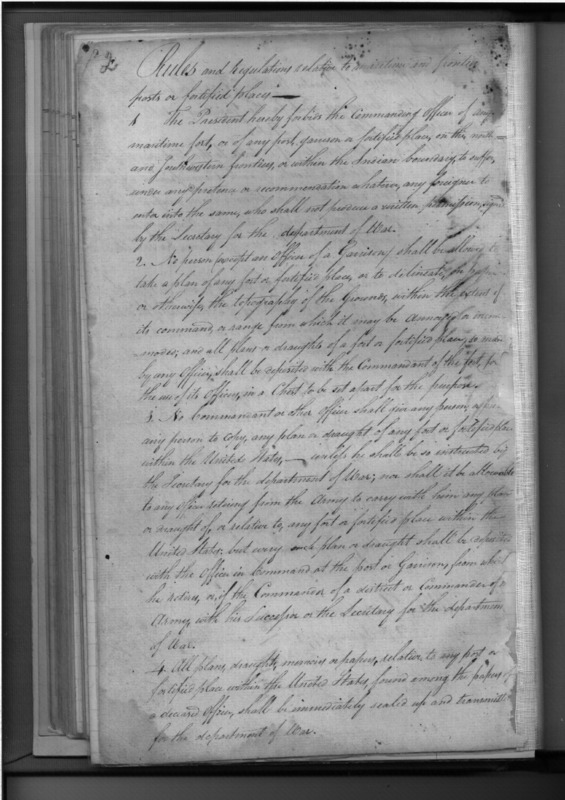 Rules and Regulations relative to maritime and frontier
posts or fortified places—
1 The President hereby forbids the Commanding Officer of any
maritime fort, or of any post, garrison or fortified place, on the north-
and Southwestern frontier, or within the Indian boundary, to suffer,
under any pretence or recommendation whatever, any foreigner to
enter into the same, who shall not produce a written permission, signed
by the Secretary for the department of War.
2. No person (except an Officer of a Garrison) shall be allowed to
take a plan of any fort or fortified place, or to delineate, on paper
or otherwise, the topography of the Grounds, within the extent of
its command, or range from which it may be annoyed or incom
moded; and all plans or draughts of a fort or fortified place, so made
by any Officer, shall be deposited with the Commandant of the fort, for
the use of its Officers, in a Chest to be set apart for the purpose.
3. No Commandant or other Officer shall give any person,
any person to copy, any plan or draught of any fort or fortified place
within the United States,— unless he shall be so instructed by
the Secretary for the department of War; nor shall it be allowable
to any officer retiring from the Army to carry with him any plan
or draught of, or relative to, any fort or fortified place within the
United States; but every such plan or draught shall be deposited
with the Officer in Command at the post or Garrison, from which
he retires, or, if the Commander of a district or Commander of a
Army, with his Successor or the Secretary for the department
of War.
4. All plans, draughts, memoirs or papers, relative to any post or
fortified place within the United States, found among the papers of
a deceased Officer, shall be immediately sealed up and transmitted
for the department of War.